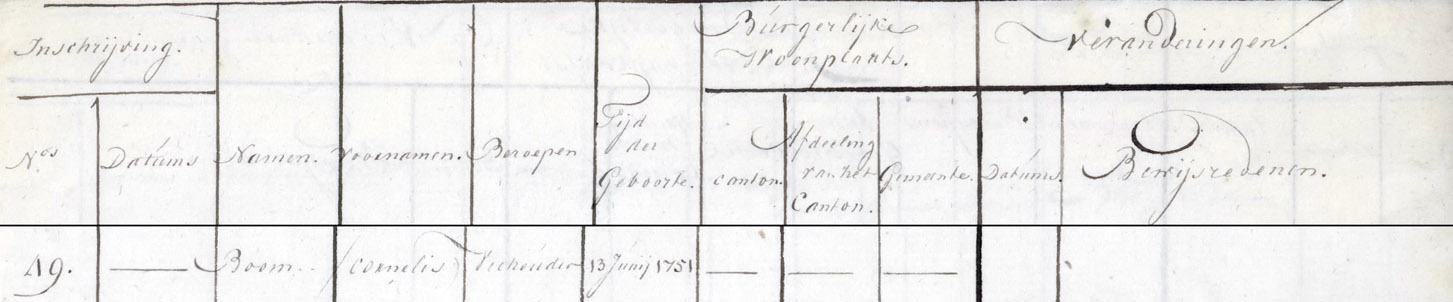 Inschrijving.
Burgerlijke
Woonplaats.
Veranderingen.
Nos
Datums
Namen.
Voornamen.
Beroepen
Tijd
der
Geboorte.
Canton.
Afdeeling
van het
Canton.
Gemeente.
Datums.
Bewijsredenen.
49. — Boom. Cornelis Veehouder 13 Junij 1751 — — —